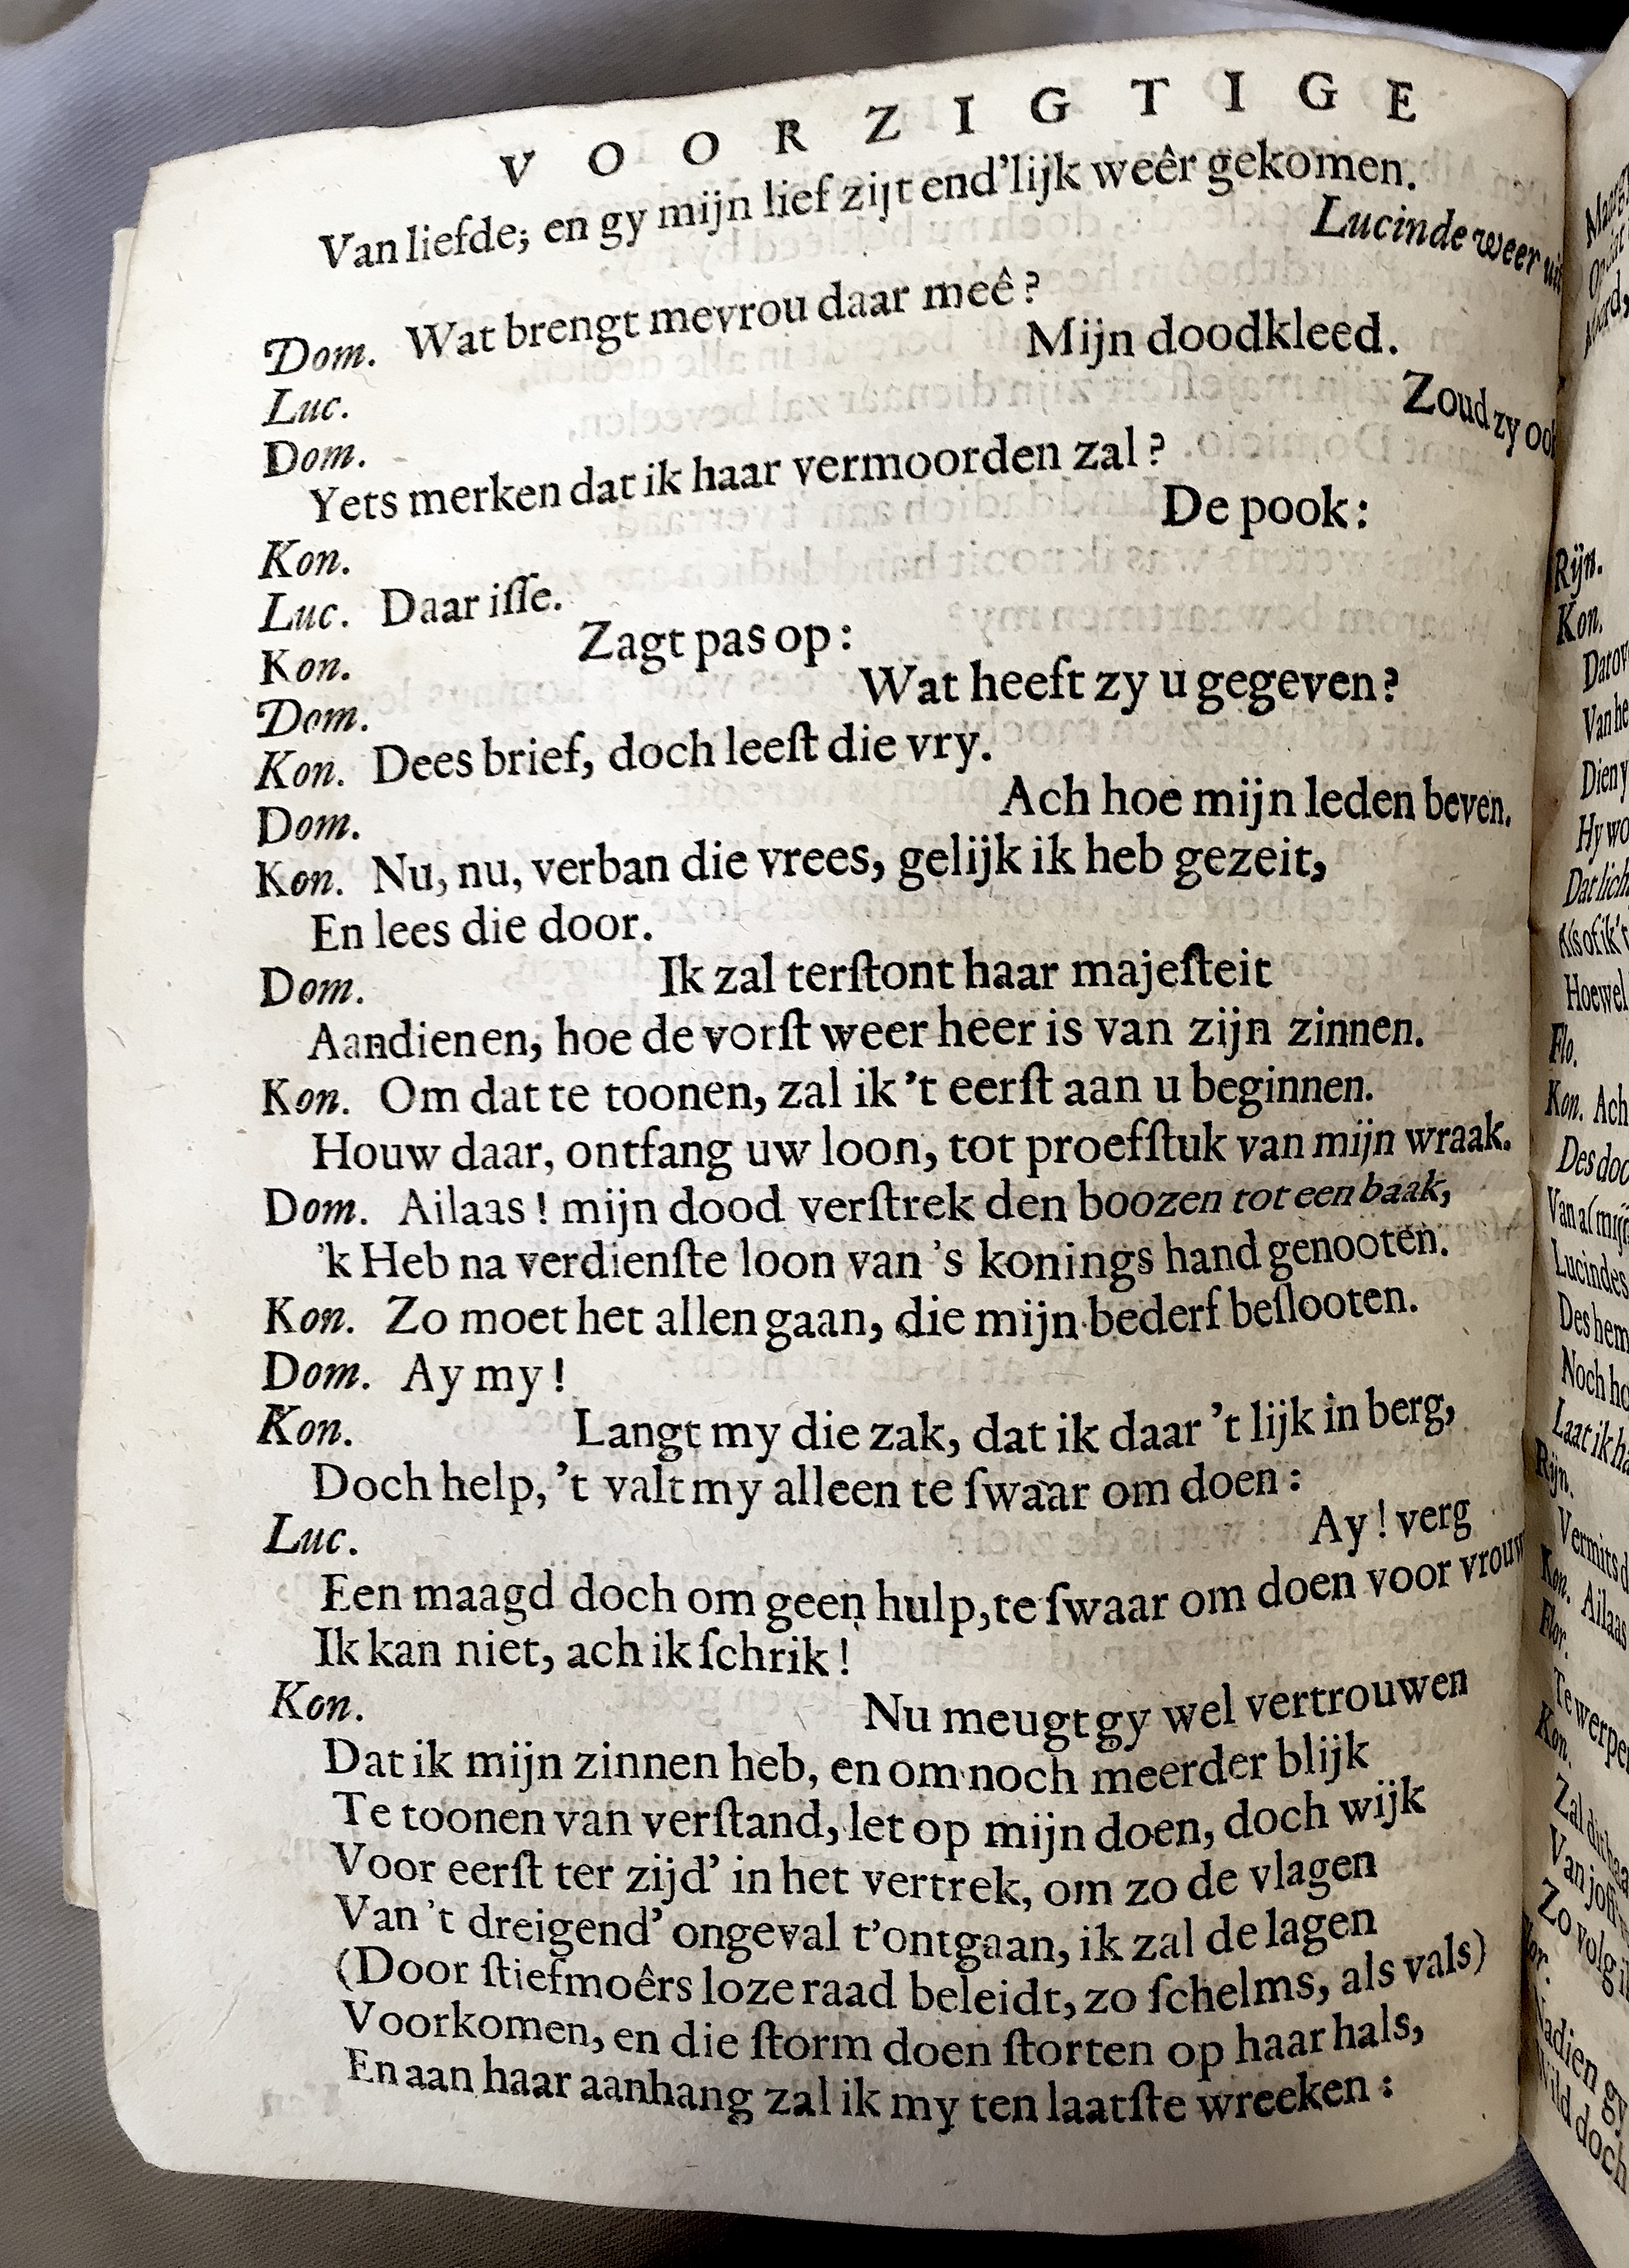 VOORZIGTIGE
Van liefde; en gy mijn lief zijt end'lijk weêr gekomen.
Lucinde weer uit
Dom. Wat brengt mevrou daar meê?
Luc. Mijn doodkleed.
Dom. Zoud zy ook
Yets merken dat ik haar vermoorden zal?
Kon. De pook:
Luc. Daar iſſe.
Kon. Zagt pas op:
Dom. Wat heeft zy u gegeven?
Kon. Dees brief, doch leeſt die vry.
Dom. Ach hoe mijn leden beven.
Kon. Nu, nu, verban die vrees, gelijk ik heb gezeit,
En lees die door.
Dom. Ik zal terſtont haar majeſteit
Aandienen, hoe de vorſt weer heer is van zijn zinnen.
Kon. Om dat te toonen, zal ik 't eerſt aan u beginnen.
Houw daar, ontfang uw loon, tot proefſtuk van mijn wraak.
Dom. Ailaas! mijn dood verſtrek den boozen tot een baak,
'k Heb na verdienſte loon van 's konings hand genooten.
Kon. Zo moet het allen gaan, die mijn bederf beſlooten.
Dom. Ay my!
Kon. Langt my die zak, dat ik daar 't lijk in berg,
Doch help, 't valt my alleen te ſwaar om doen:
Luc. Ay! verg
Een maagd doch om geen hulp, te ſwaar om doen voor vrouw
Ik kan niet, ach ik ſchrik!
Kon. Nu meugt gy wel vertrouwen
Dat ik mijn zinnen heb, en om noch meerder blijk
Te toonen van verſtand, let op mijn doen, doch wijk
Voor eerſt ter zijd' in het vertrek, om zo de vlagen
Van 't dreigend' ongeval t'ontgaan, ik zal de lagen
(Door ſtiefmoêrs loze raad beleidt, zo ſchelms, als vals)
Voorkomen, en die ſtorm doen ſtorten op haar hals,
En aan haar aanhang zal ik my ten laatſte wreeken:
Rijn.
Kon.
Flo.
Kon. Ach
Lucindes
Rijn.
Kon. Ailaas
Flor.
Kon.